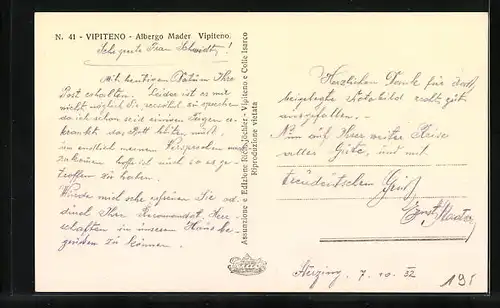 N. 41 - VIPITENO - Albergo Mader Vipiteno.
Sehr geehrte Frau Schmidt!
Mit heutigem Datum Ihre
Post erhalten. Leider ist es mir
nicht möglich Sie persönlich zu sprechen
da ich schon seit einigen Tagen er-
krankt das Bett hüten muß,
um endlich meinem Versprechen nach
zu kommen hoffe ich mich so es ge-
troffen zu haben.
Würde mich sehr erfreuen Sie
Ihre Herr-
schaften in unserem Hause be-
grüßen zu können.
Assunzione e Edizione Rich. Pichler - Vipiteno e Colle Isarco
Riproduzione vietata
Herzlichen Dank für
beigelegte Fotobild recht gut
ausgefallen.
Nun auf Ihrer weiter Reise
alles Gute, und mit
treudeutschem Gruß
Ernst
7.10.32
195